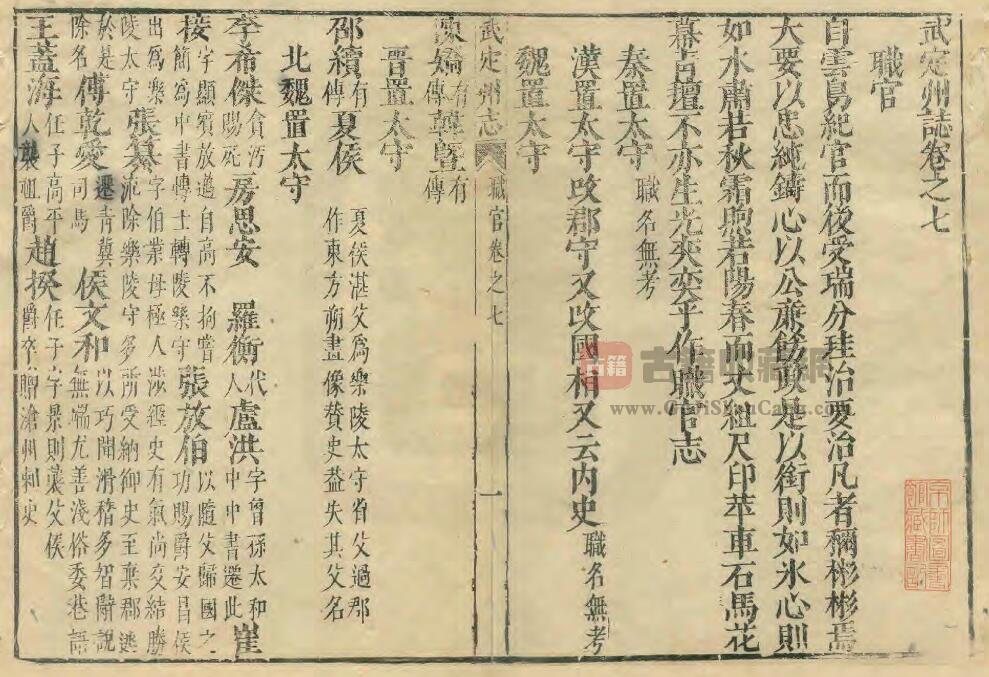 武定州誌卷之七
職官
白雲鳥紀官而後受瑞分珪治要治凡者稱彬彬焉
大要以忠純鑄心以公廉飭政是以銜則如氷心則
如水肅若秋霜煦若陽春而丈組尺印苹車石馬花
幕言壇不亦生光奕奕乎作職官志
秦置太守職名無考
漢置太守改郡守又改國相又云内史職名無考
魏置太守
武定州志 職官卷之七 一
陳矯有傳韓曁有傳
晋置太守
邵續有傳夏侯夏侯湛父爲樂陵太守省父過郡作東方朔畫像贊史益失其父名
北魏置太守
李希傑貪污賜死房思安 羅衡代人盧洪字曾孫太和中中書遷此崔
接字顯賓放邁自高不拘嘗簡爲中書博士轉陵樂守張放伯以隨父歸國之功賜爵安昌侯
出爲樂陵太守張纂字伯業母極人涉經史有氣尚交結勝流除樂陵守多所受納御史至棄郡逃
於是除名傅乾愛遷青兾司馬侯文和以巧聞滑稽多智辭説無端尤善淺俗委巷語
王蓋海任子高平人襲祖爵趙揆任子字景則襲父侯爵卒贈滄州刺史
古籍 古籍典藏網
www.GuJiShanCang.com